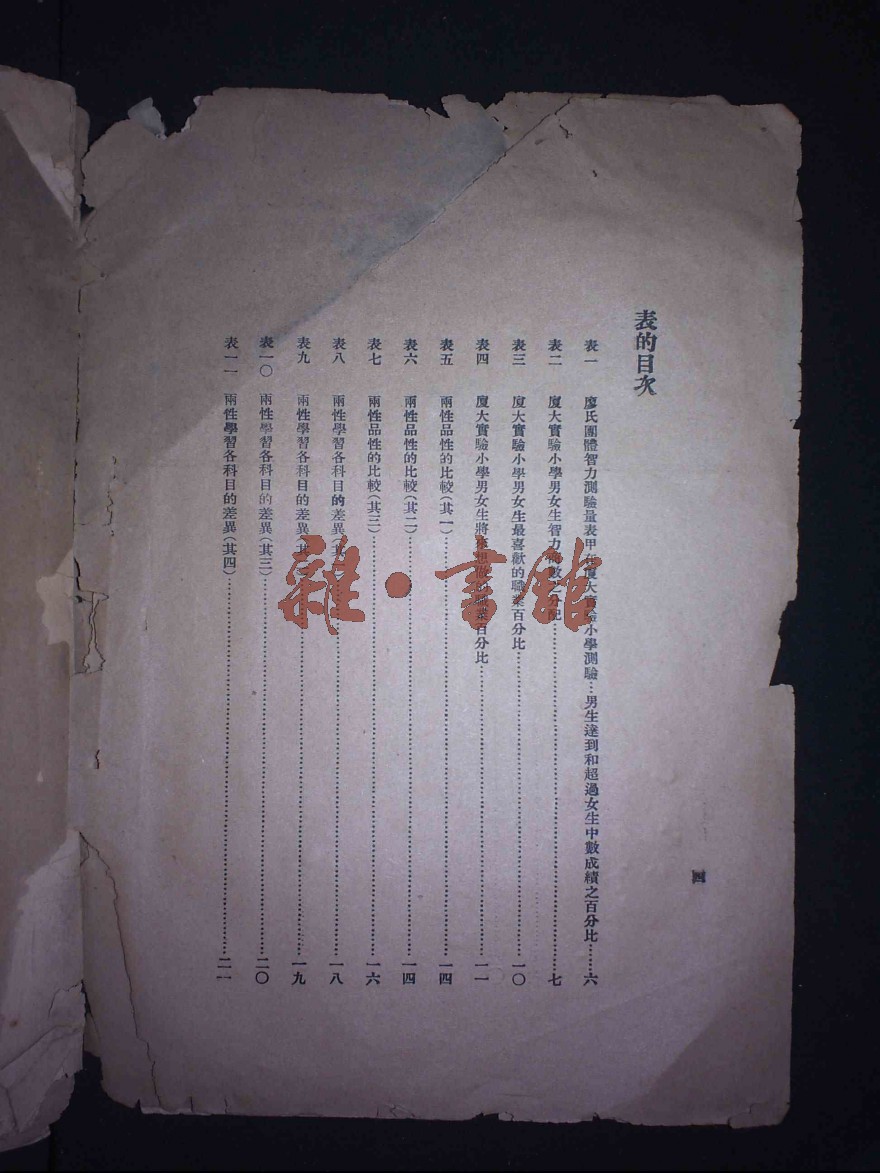 表的目次
表一 廖氏團體智力測驗量表甲在廈大實驗小學測驗…男生達到和超過女生中數成績之百分比……六
表二 廈大實驗小學男女生智力商數之分配……七
表三 廈大實驗小學男女生最喜歡的職業百分比……一〇
表四 廈大實驗小學男女生將來想做的職業百分比……一一
表五 兩性品性的比較(其一)……一四
表六 兩性品性的比較(其二)……一四
表七 兩性品性的比較(其三)……一六
表八 兩性學習各科目的差異(其……一八
表九 兩性學習各科目的差異(其……一九
表一〇 兩性學習各科目的差異(其三)……二〇
表一一 兩性學習各科目的差異(其四)……二一
四
雜·書館